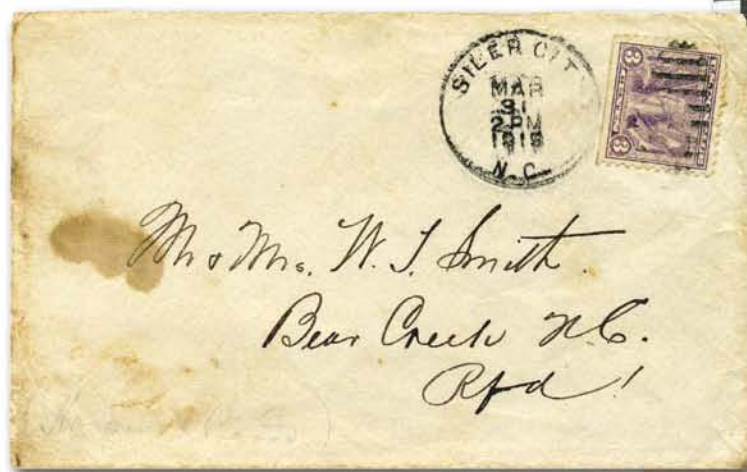 SILER CIT
MAR
31
2 PM
1919
N.C.
3 3
Mr & Mrs. W. J. Smith.
Bear Creek N.C.
Rfd 1